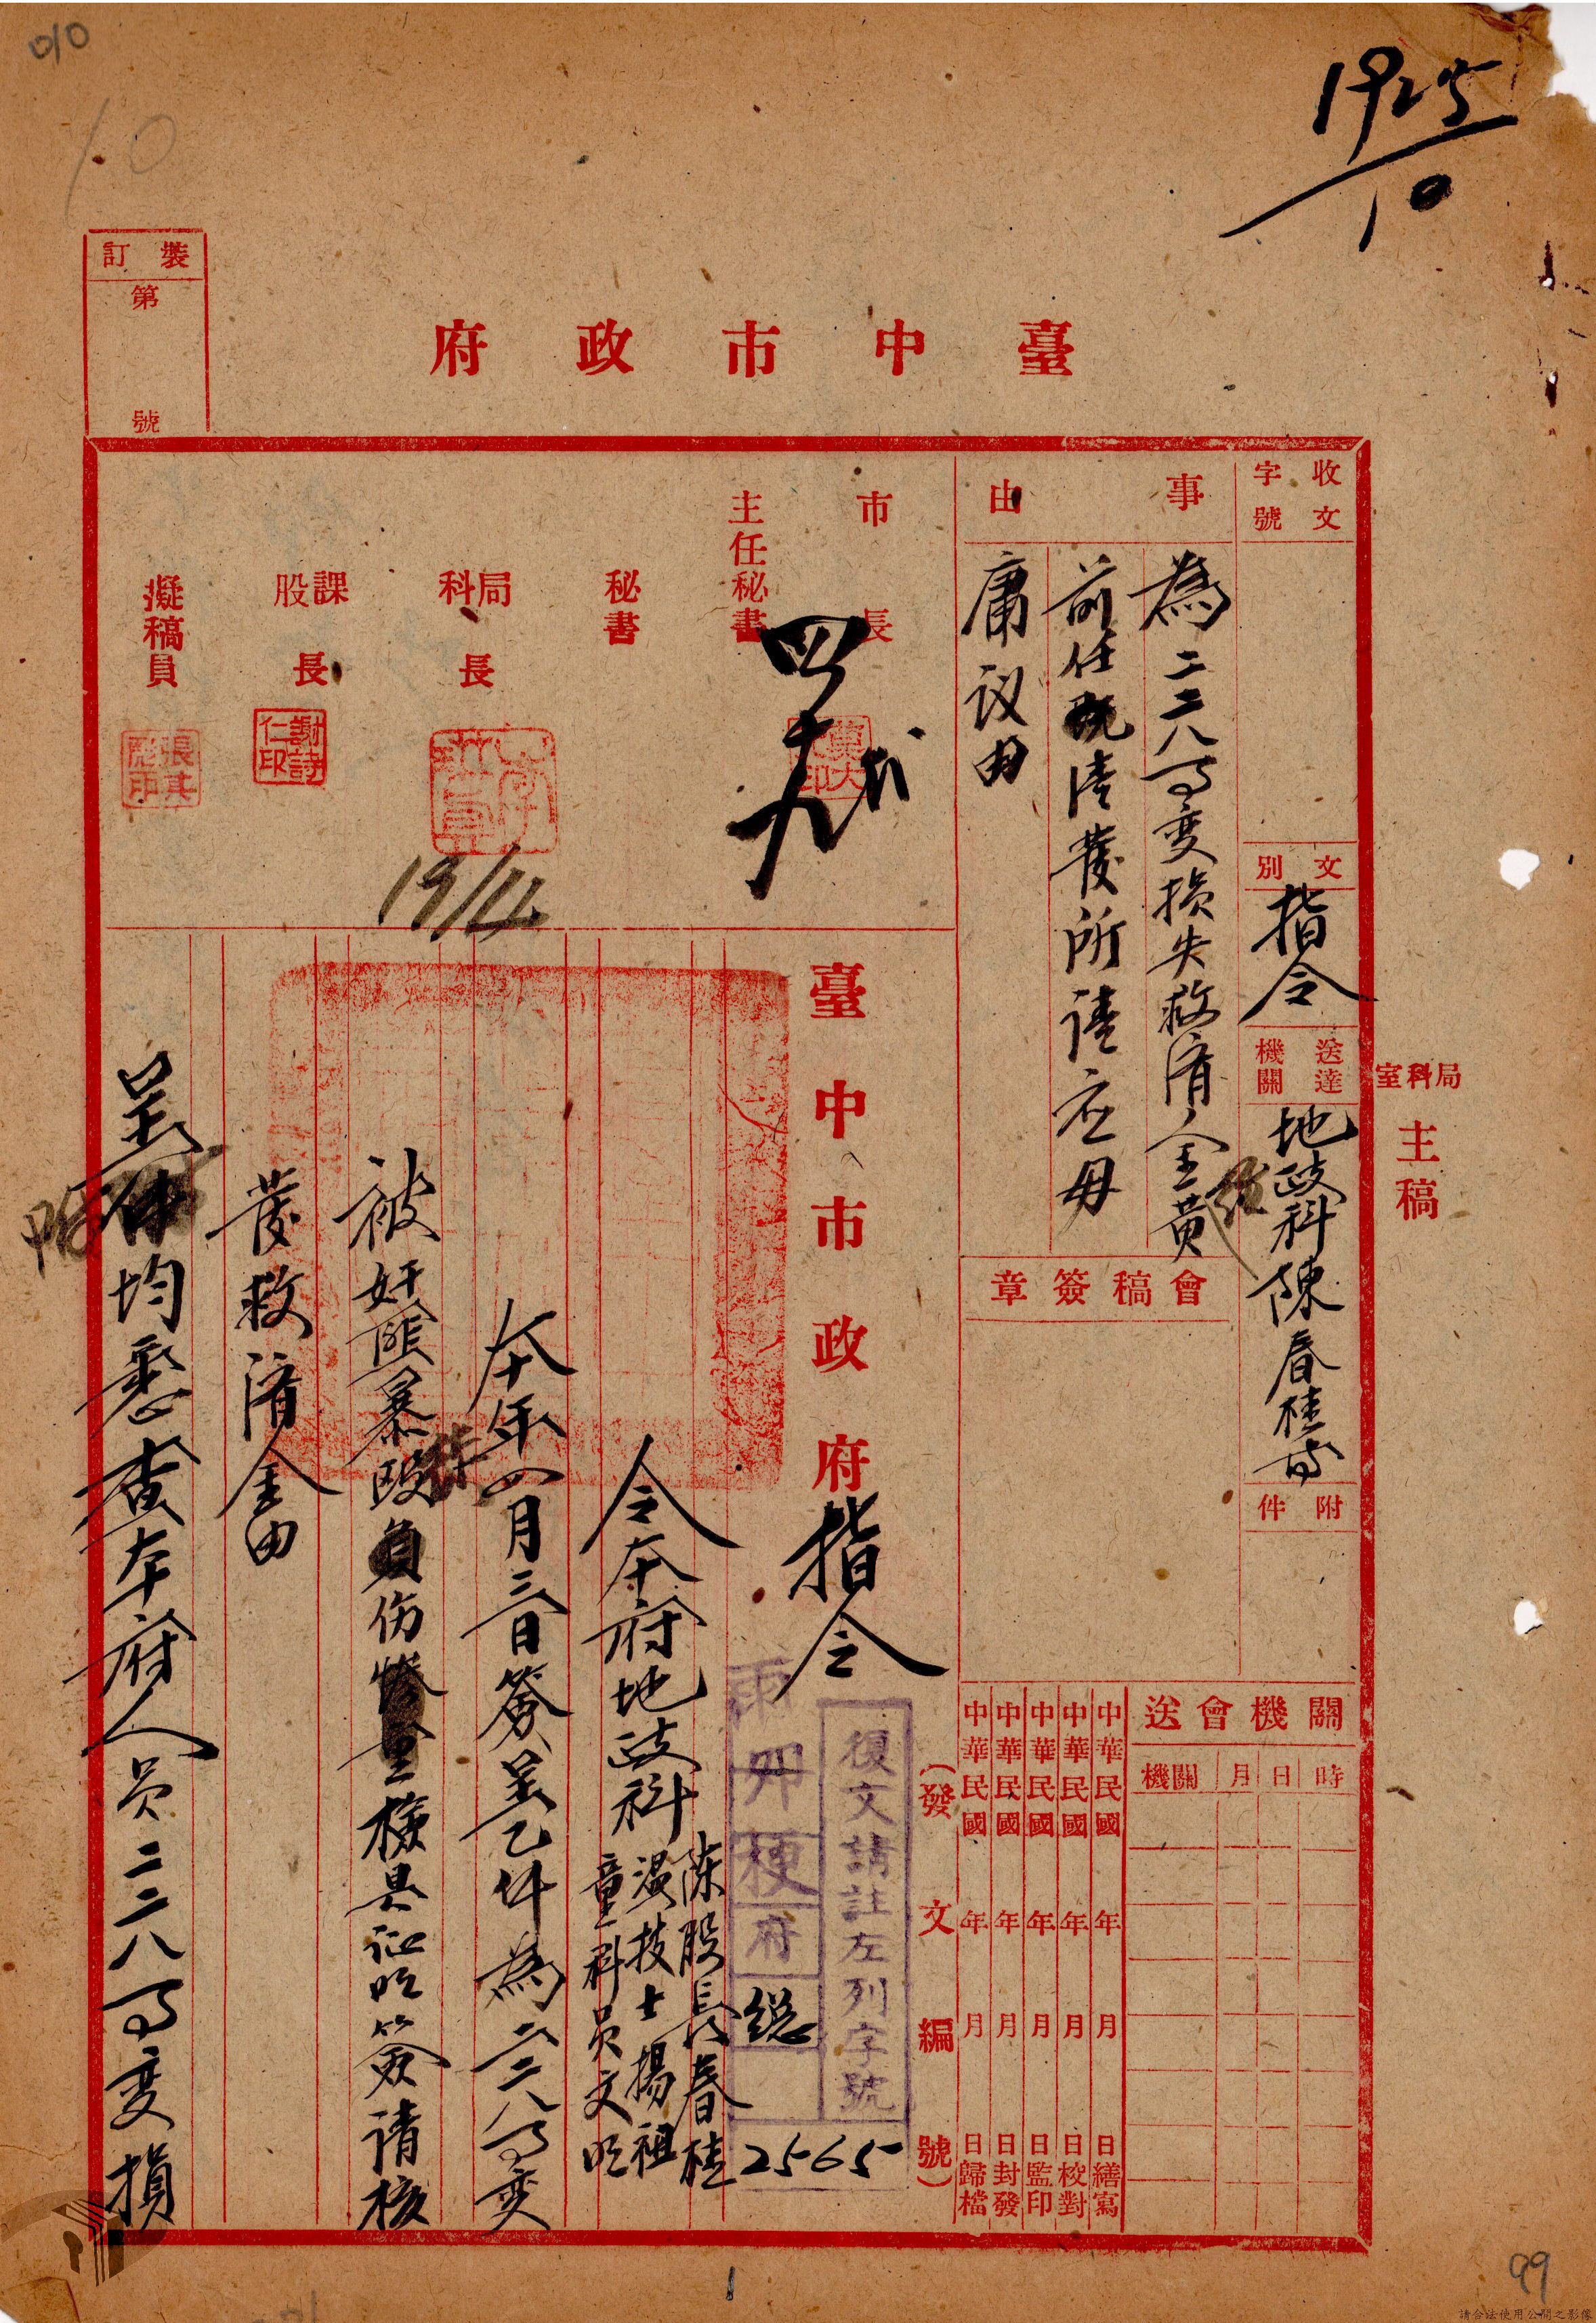 010
10
1925/10
裝訂
第
號
臺中市政府
收文
字號
文別
指令
送達
機關
地政科陳春桂等
附件
局科室
主稿
事由
為二二八事變損失救濟金黃
前任既經
請發所請應毋
庸议由
會稿簽章
關機會送
機關
月
日
時
中華民國 年 月 日繕寫
中華民國 年 月 日校對
中華民國 年 月 日監印
中華民國 年 月 日封發
中華民國 年 月 日歸檔
(發文編號)
市長
主任秘書
秘書
局科長
課股長
謝詩仁印
擬稿員
張其彪印
19/4
臺中市政府指令
復文請註左列字號
府
總
2565
令本府地政科
陈股長春桂
技士揚祖
童科員文
本年四月三日簽呈乙件為二二八事變
被奸匪暴毆
負伤
檢具证明簽请核
發救濟金由
呈件均悉查本府人员二二八事变損
1
99
請合法使用公開之影像